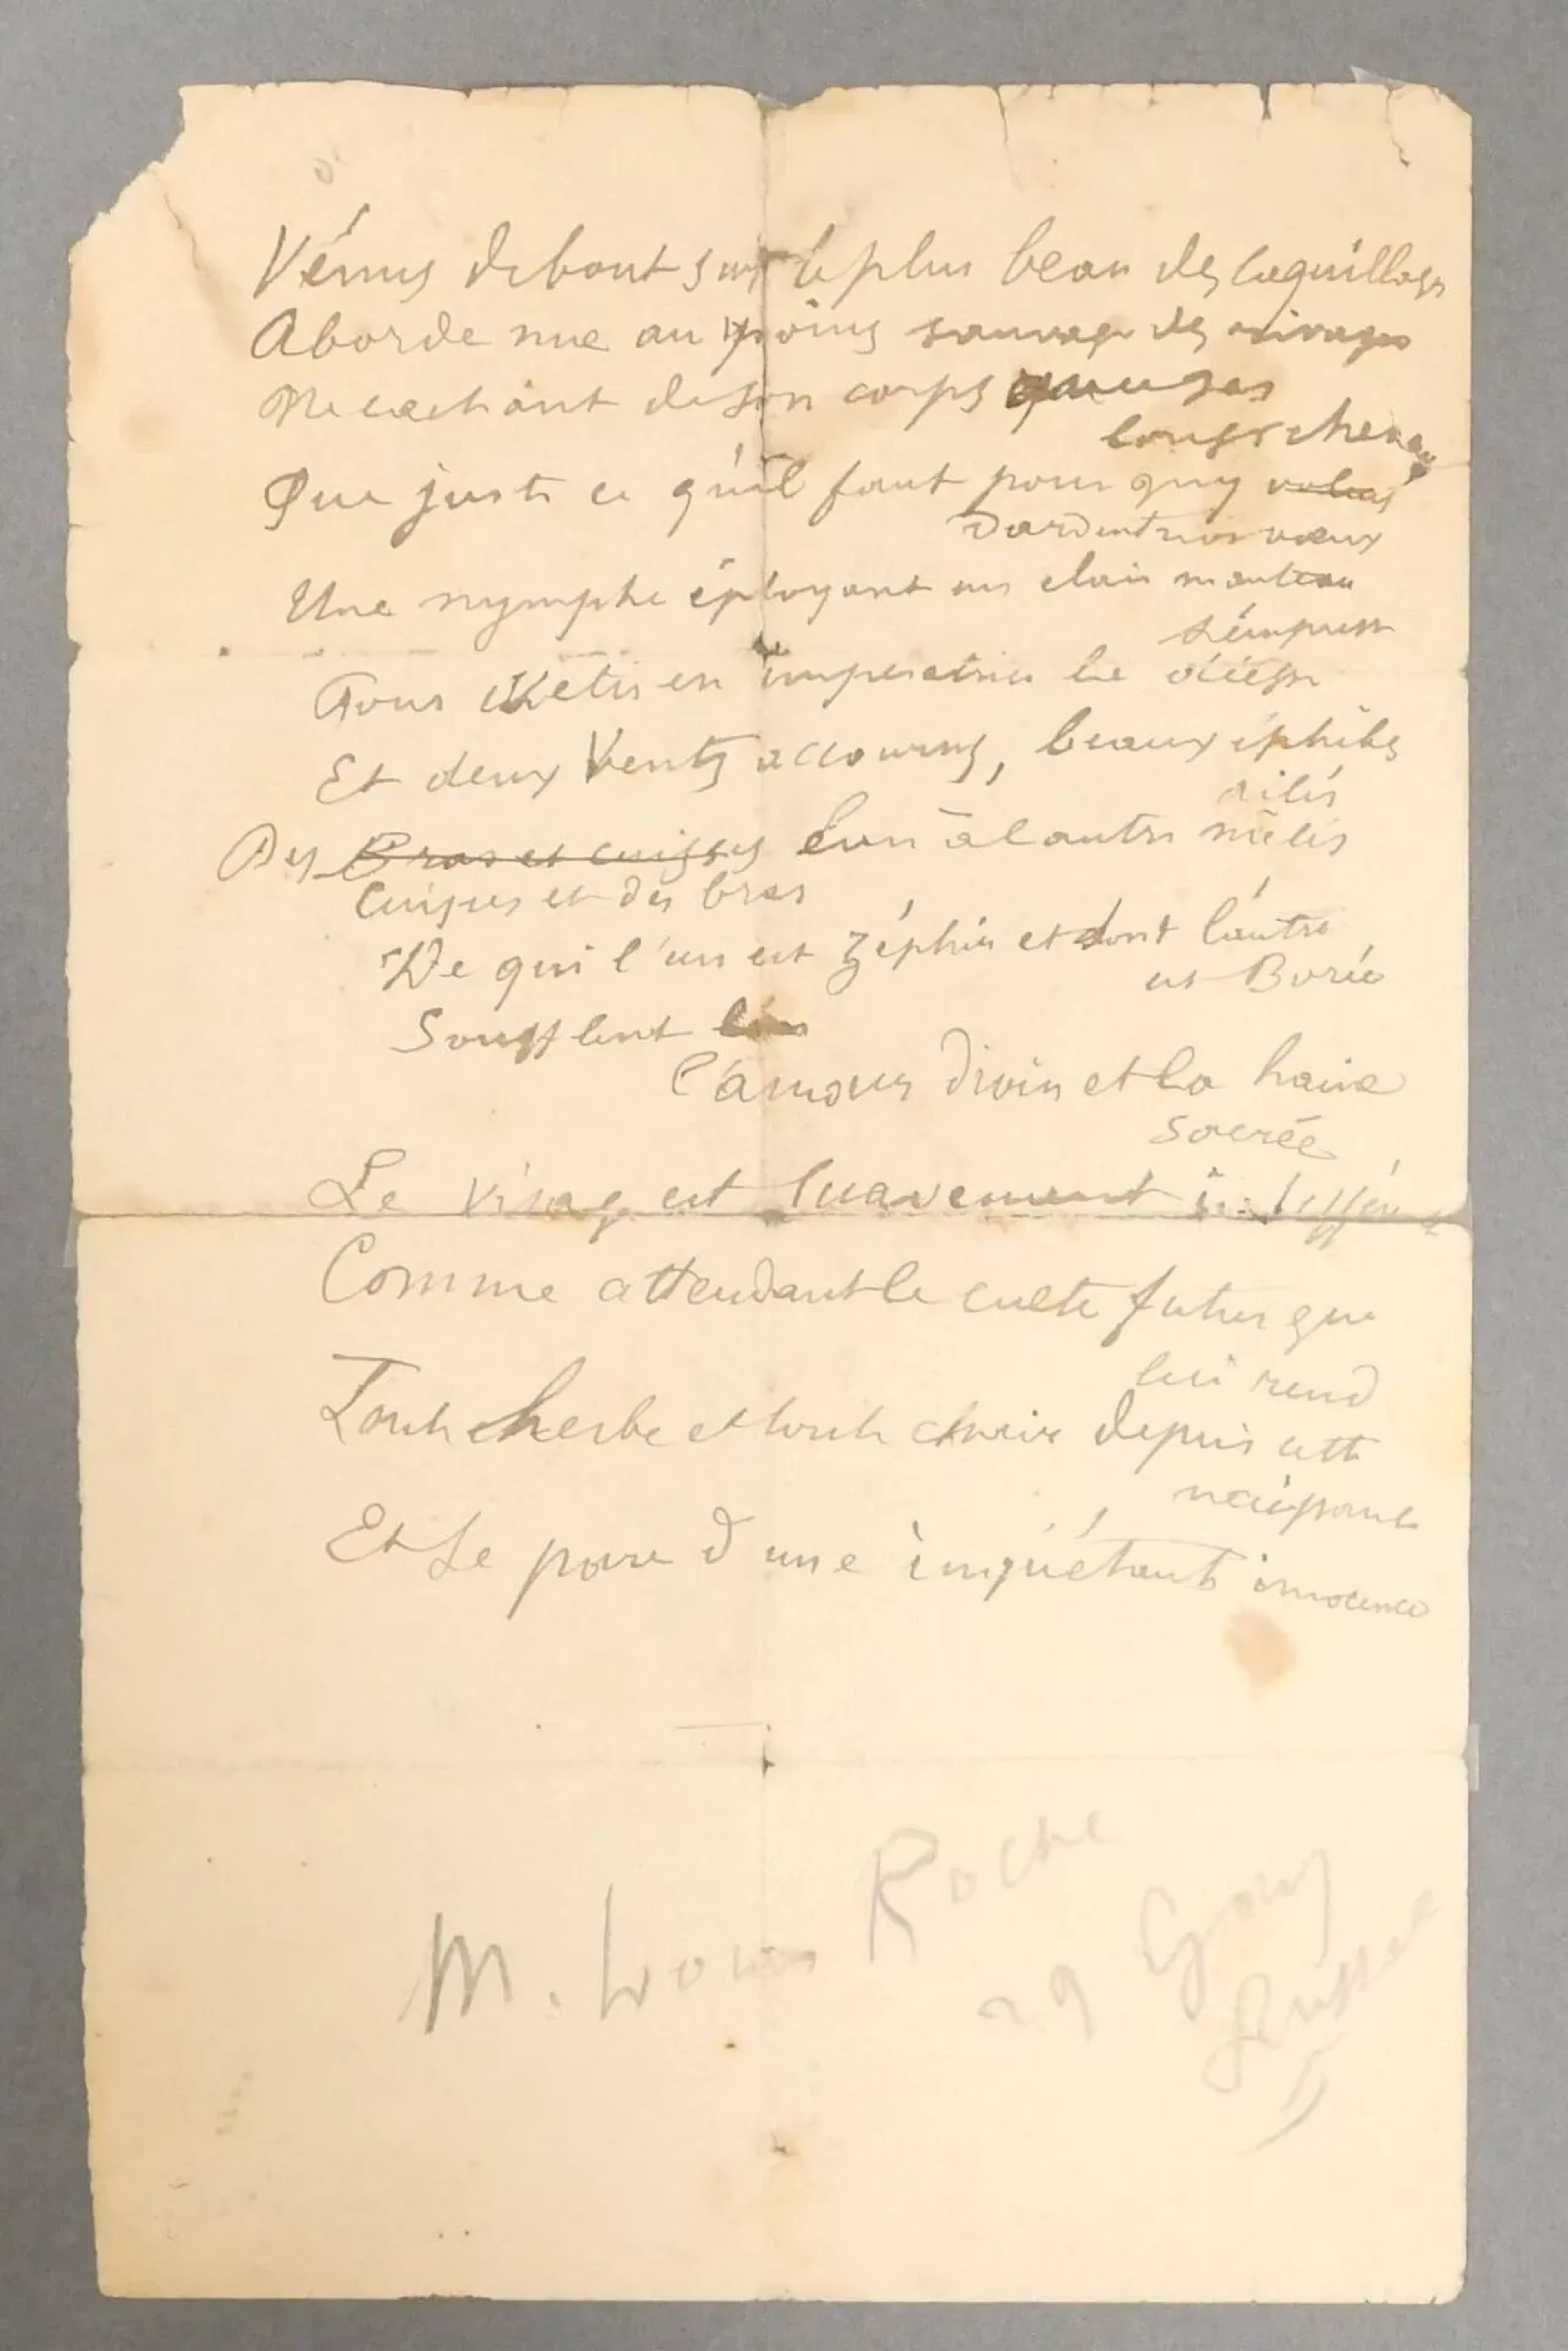 Vénus debout sur le plus beau des coquillages
Aborde nue au moins sauvage des rivages
Ne cachant de son corps que ses
longs cheveux
Que juste ce qu'il faut pour qu'y volent
dardent nos vœux
Une nymphe éployant un clair manteau
s'empresse
Pour vêtir en impératrice la déesse
Et deux Vents accourus, beaux éphèbes
ailés
Des Bras et cuisses l'un à l'autre mêlés
Cuisses et des bras
De qui l'un est Zéphir et dont l'autre
est Borée
Soufflent
l'amour divin et la haine
sacrée
Le visage est suavement indifférent
Comme attendant le culte futur que
lui rend
Toute herbe et toute chair depuis cette
naissance
Et se pare d'une inquiétante innocence
M. Louis Roche
29